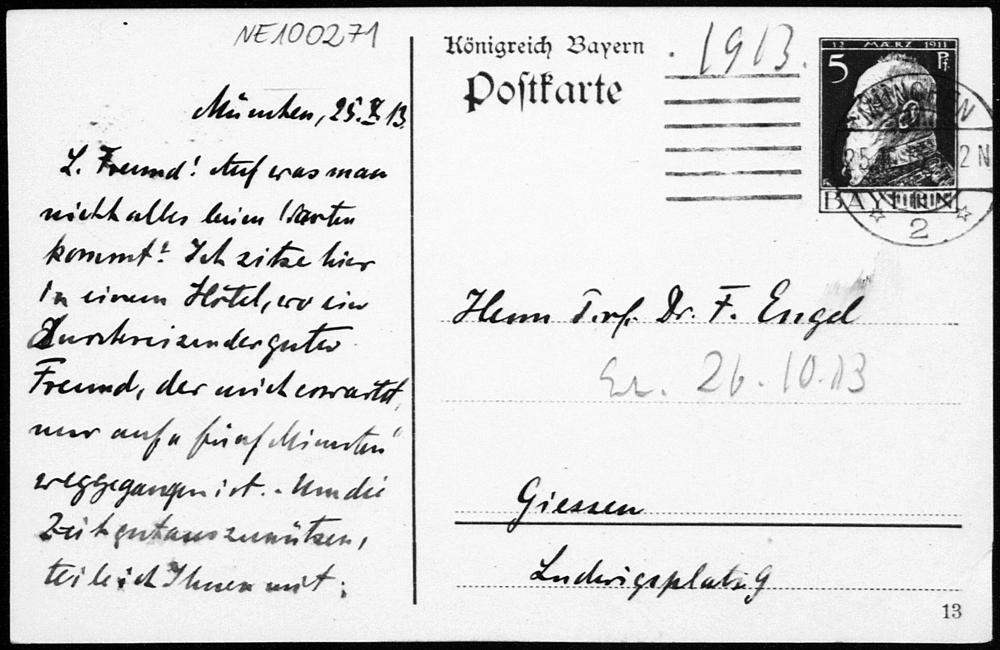 NE100271
München, 25. X 13.
L. Freund! Auf was man
nicht alles beim Warten
kommt! Ich sitze hier
in einem Hôtel, wo ein
Durchreisender guter
Freund, der mich erwartet,
nur auf "fünf Minuten"
weggegangen ist. – Um die
Zeit gut auszunützen,
teile ich Ihnen mit:
Königreich Bayern
Postkarte
1913.
12 MÆRZ 1911
5 Pf.
BAYERN
MÜNCHEN
25
2 N
2
Herrn Prof. Dr. F. Engel
26.10.13
Giessen
Ludwigsplatz 9
13